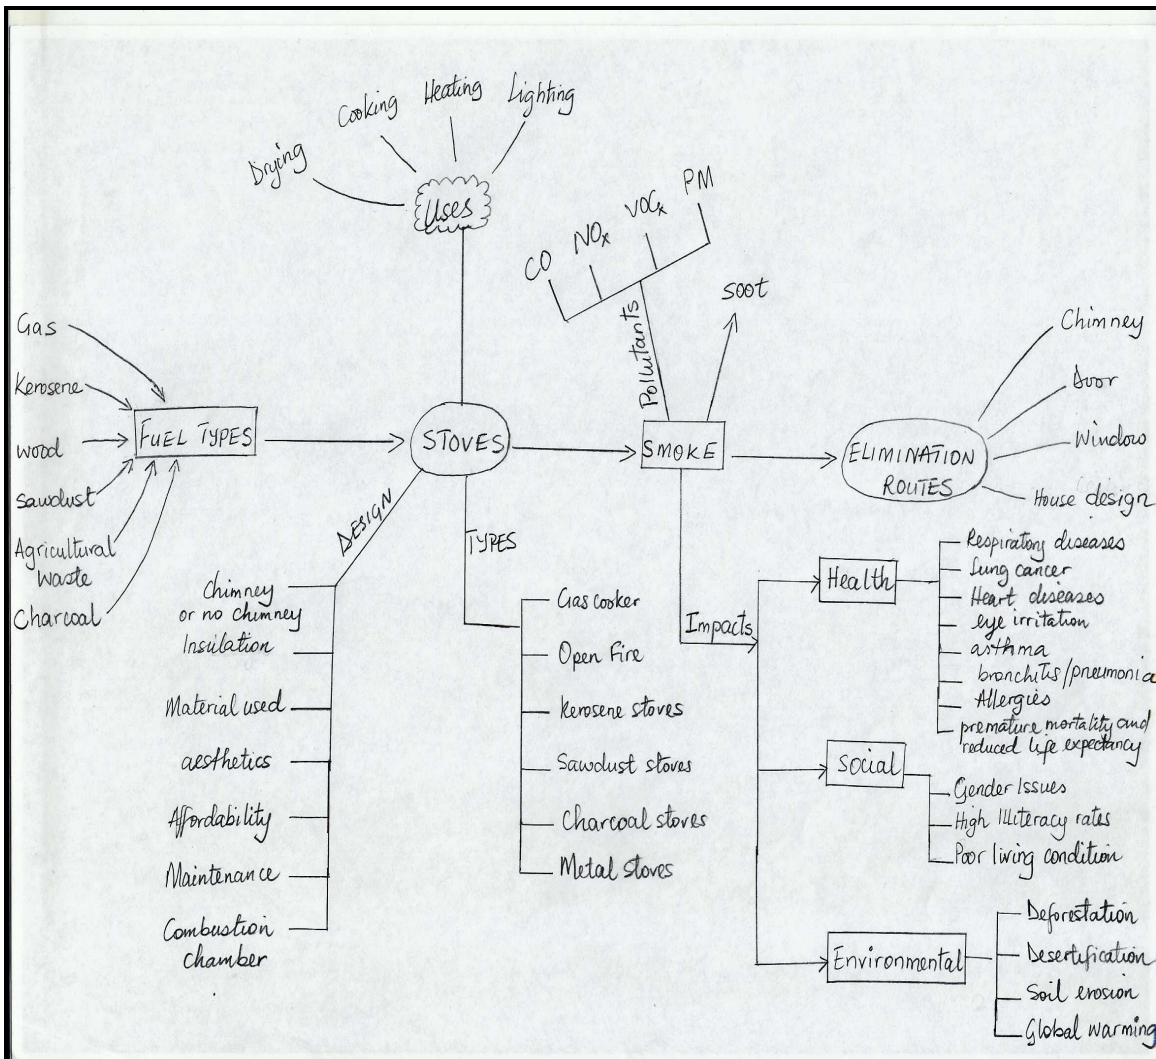 Drying
Cooking
Heating
Lighting
Uses
CO
NOx
VOCx
PM
Pollutants
soot
Gas
Kerosene
wood
Sawdust
Agricultural
waste
Charcoal
FUEL TYPES
STOVES
SMOKE
ELIMINATION
ROUTES
Chimney
Door
Window
House design
DESIGN
Chimney
or no chimney
Insulation
Material used
aesthetics
Affordability
Maintenance
Combustion
chamber
TYPES
Gas cooker
Open Fire
Kerosene stoves
Sawdust stoves
Charcoal stoves
Metal stoves
Impacts
Health
Respiratory diseases
Lung cancer
Heart diseases
eye irritation
asthma
bronchitis/pneumonia
Allergies
premature mortality and
reduced life expectancy
Social
Gender Issues
High Illiteracy rates
Poor living condition
Environmental
Deforestation
Desertification
Soil erosion
Global warming